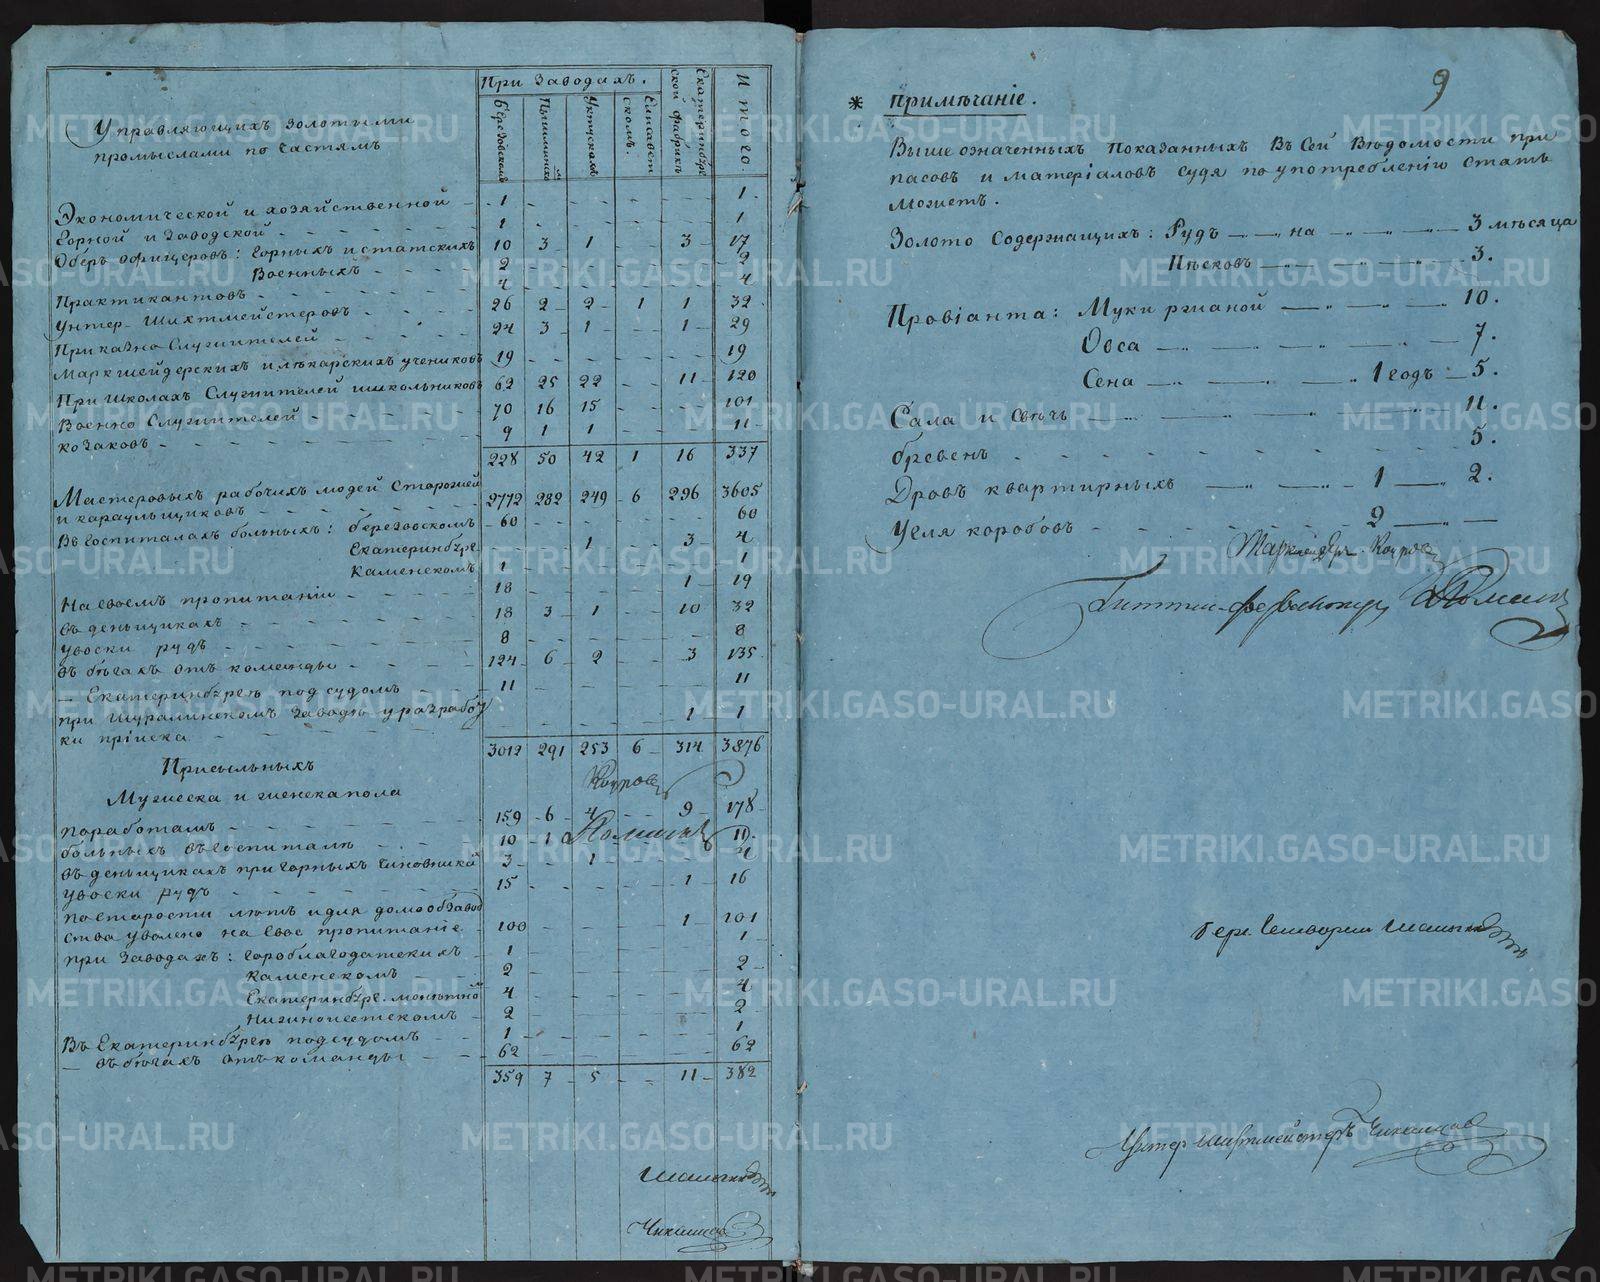 При Заводахъ.
Березовскомъ
Пышминскомъ
Уктускомъ
Елисаветскомъ.
Екатеринбургской фабрикѣ
Итого.
Управляющихъ золотыми
промыслами по частямъ
Экономической и хозяйственной - 1 - - - - 1.
Горной и Заводской - 1 - - - - 1
Оберъ офицеровъ: Горныхъ и статскихъ 10 3 1 - 3 17
Военныхъ - 2 - - - - 2
Практикантовъ - 4 - - - - 4
Унтер-Шихтмейстеровъ - 26 2 2 1 1 32
Приказно Служителей - 24 3 1 - 1 29
Маркшейдерскихъ и лѣкарскихъ учениковъ 19 - - - - 19
При школахъ Служителей школьниковъ 62 25 22 - 11 120
Военно Служителей - 70 16 15 - - 101
козаковъ - 9 1 1 - - 11
228 50 42 1 16 337
Мастеровыхъ рабочихъ людей Сторожей
и караульщиковъ - 2772 282 249 6 296 3605
Въ Госпиталахъ больныхъ: березовскомъ - 60 - - - - 60
Екатеринбург. - - 1 - 3 4
Каменскомъ 1 - - - - 1
На своемъ пропитаніи - 18 - - - 1 19
въ деньщикахъ - 18 3 1 - 10 32
Увоски рудъ - 8 - - - - 8
въ бѣгахъ отъ команды - 124 6 2 - 3 135
- Екатеринбургѣ подъ судомъ - 11 - - - - 11
при Шуралинскомъ Заводѣ у разработ
ки пріиска - - - - - 1 1
3012 291 253 6 314 3876
Присыльныхъ
Мужеска и женска пола
поработамъ - 159 6 4 - 9 178
больныхъ въ госпиталѣ - 10 1 - - - 11.
въ деньщикахъ при горныхъ Чиновникахъ 3 - 1 - - 4
Увоски рудъ - 15 - - - 1 16
постарости лѣтъ и для домообзавод
ства уволено на свое пропитаніе - 100 - - - 1 101
при Заводахъ: Гороблагодатскихъ - 1 - - - - 1
Каменскомъ - 2 - - - - 2
Екатеринбург. монетномъ 4 - - - - 4
Нижноисетскомъ - 2 - - - - 2
Въ Екатеринбургѣ подсудомъ - 1 - - - - 1
- въ бѣгахъ отъ команды - 62 - - - - 62
359 7 5 - 11 382
9
* Примѣчаніе.
Выше означенныхъ показанныхъ въ сей Вѣдомости при
пасовъ и матеріаловъ судя по употребленію стать
можетъ.
Золото Содержащихъ: Рудъ — на — 3 мѣсяца
Пѣсковъ — 3.
Провіанта: Муки ржаной — 10.
Овса — 7.
Сена — 1 годъ — 5.
Сала и свѣчь — 11.
бревенъ - 5.
Дровъ квартирныхъ — 1 — 2.
Уеля коробовъ - 2 — " —
METRIKI.GASO-URAL.RU